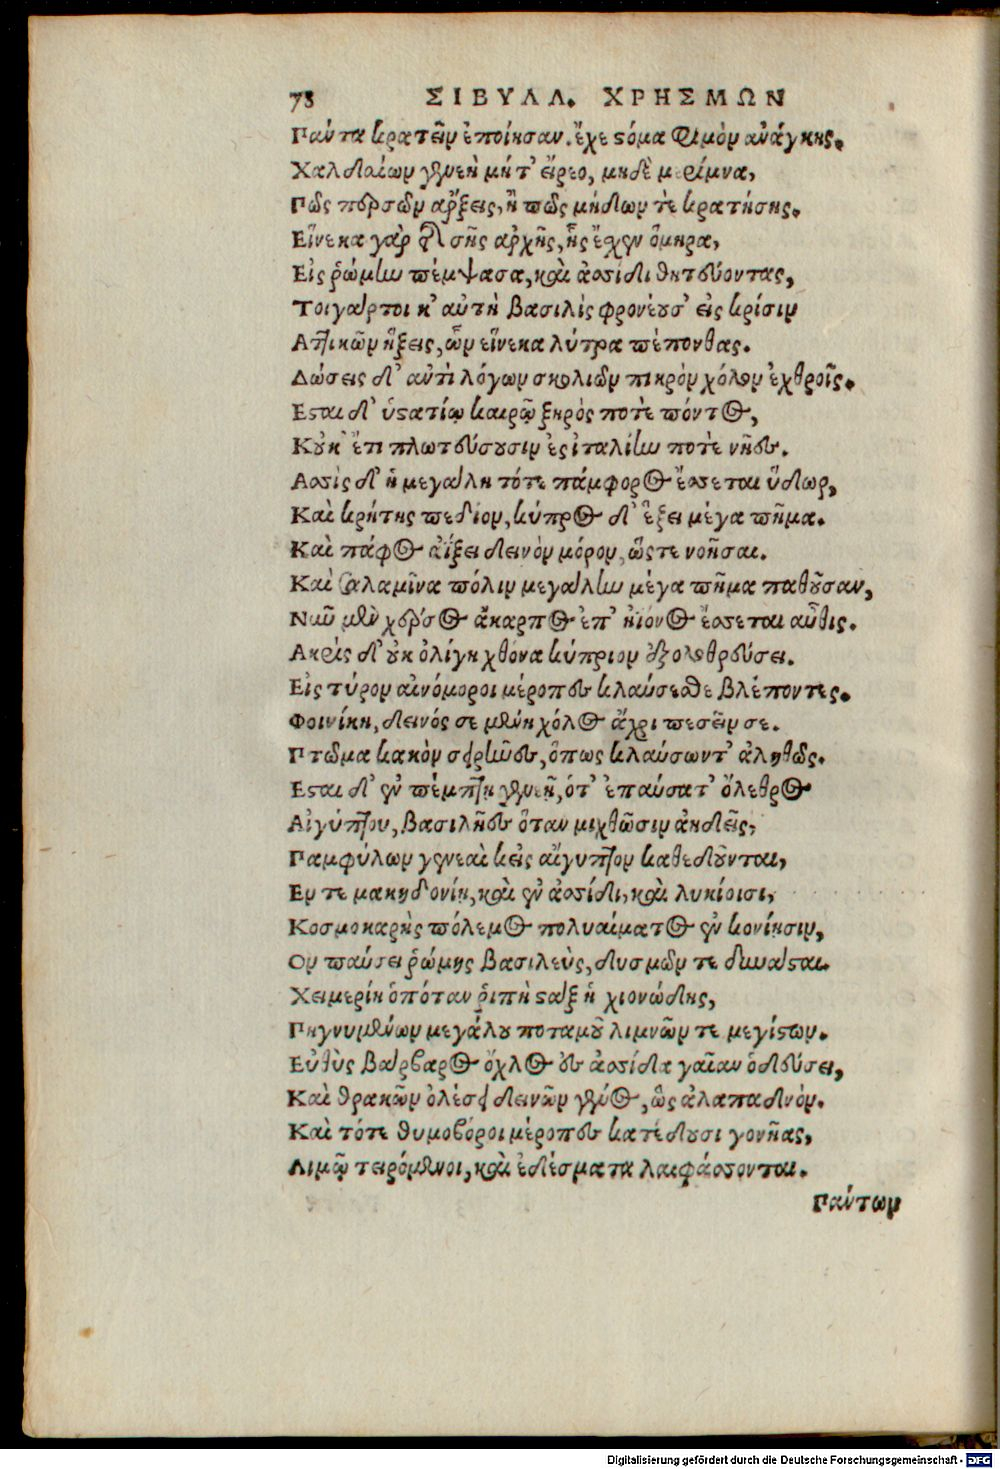 78 ΣΙΒΥΛΛ. ΧΡΗΣΜΩΝ
Πάντα κρατεῖν ἐποίησαν. ἔχε στόμα φιμὸν ἀνάγκης.
Χαλδαίων γενεὴ μήτ' εἴρεο, μηδὲ μερίμνα,
Πῶς περσῶν ἄρξεις, ἢ πῶς μήδων τὲ κρατήσῃς.
Εἵνεκα γὰρ τῆς σῆς ἀρχῆς, ἧς ἔσχεν ὅμηρα,
Εἰς ῥώμην πέμψασα, καὶ ἀσίδι θητεύοντας,
Τοιγάρτοι κ' αὐτὴ βασιλὶς φρονέουσ' εἰς κρίσιν
Ἀττικῶν ἥξεις, ὧν εἵνεκα λύτρα πέπονθας.
Δώσεις δ' αὐτὶ λόγων σκολιῶν πικρὸν χόλον ἐχθροῖς.
Ἔσται δ' ὑστατίῳ καιρῷ ξηρὸς ποτὲ πόντος,
Κοὐκ' ἔτι πλωτεύσουσιν ἐς ἰταλίην ποτὲ νῆες.
Ἀσὶς δ' ἡ μεγάλη τότε πάμφορος ἔσσεται ὕδωρ,
Καὶ κρήτης πεδίον, κύπρος δ' ἕξει μέγα πῆμα.
Καὶ πάφος αἴξει δεινὸν μόρον, ὥστε νοῆσαι.
Καὶ σαλαμῖνα πόλιν μεγάλην μέγα πῆμα παθοῦσαν,
Νῦν μὲν χέρσος ἄκαρπος ἐπ' ἠϊόνος ἔσσεται αὖθις.
Ἀκρὶς δ' οὐκ ὀλίγη χθόνα κύπριον ἐξολοθρεύσει.
Εἰς τύρον αἰνόμοροι μέροπες κλαύσεσθε βλέποντες.
Φοινίκη, δεινός σε μένη χόλος ἄχρι πεσεῖν σε.
Πτῶμα κακὸν σειρῆνες, ὅπως κλαύσωντ' ἀληθῶς.
Ἔσται δ' ἐν πέμπτῃ γενεῇ, ὅτ' ἐπαύσατ' ὄλεθρος
Αἰγύπτου, βασιλῆες ὅταν μιχθῶσιν ἀηδεῖς,
Παμφύλων γενεαὶ κεἰς αἴγυπτον καθεδοῦνται,
Ἔν τε μακηδονίῃ, καὶ ἐν ἀσίδι, καὶ λυκίοισι,
Κοσμοκαρὴς πόλεμος πολυαίματος ἐν κονίῃσιν,
Ὃν παύσει ῥώμης βασιλεὺς, δυσμῶν τε δυνάσται.
Χειμερίη ὁπόταν ῥιπὴ στάξῃ χιονώδης,
Πηγνυμένων μεγάλου ποταμοῦ λιμνῶν τε μεγίστων.
Εὐθὺς βάρβαρος ὄχλος ἐς ἀσίδα γαῖαν ὁδεύσει,
Καὶ θρακῶν ὀλέσει δεινῶν γένος, ὡς ἀλαπαδνόν.
Καὶ τότε θυμοβόροι μέροπες κατέδουσι γονῆας,
Λιμῷ τειρόμενοι, καὶ ἐδέσματα λαιφάσσονται.
Πάντων
Digitalisierung gefördert durch die Deutsche Forschungsgemeinschaft - DFG